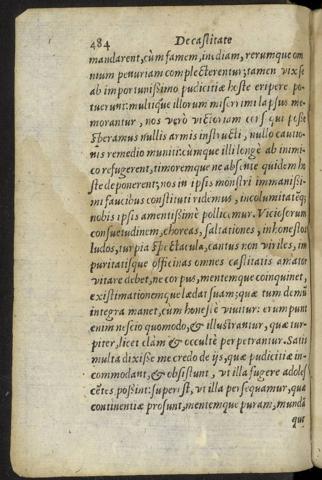 484 De castitate
mandarent, cùm famem, inediam, rerumque om
nium penuriam complecterentur; tamen vix se
ab importunissimo pudicitiæ hoste eripere po
tuerunt: multique illorum miseri mi lapsus me-
morantur, nos verò victoriam eos qui posse
speramus nullis armis instructi, nullo cautio-
nis remedio muniti: cùmque illi longè ab inimi-
co refugerent, timoremque ne absente quidem ho
ste deponerent; nos in ipsis monstri immanissi-
mi faucibus constituti ridemus, incolumitatéq;
nobis ipsis amentissimè pollicemur. Viciosorum
consuetudinem, choreas, saltationes, inhonestos
ludos, turpia spectacula, cantus non viriles, im
puritatisque officinas omnes castitatis amator
vitare debet, ne corpus, mentemque coinquinet,
existimationemque lædat suam; quæ tum demũ
integra manet, cùm honestè viuitur: erumpunt
enim nescio quomodo, & illustrantur, quæ tur-
piter, licet clam & occultè perpetrantur. Satis
multa dixisse me credo de ijs, quæ pudicitiæ in-
commodant, & obsistunt, vt illa fugere adoles
cẽtes possint: superest, vt illa persequamur, quæ
continentiæ prosunt, mentemque puram, mundã
que